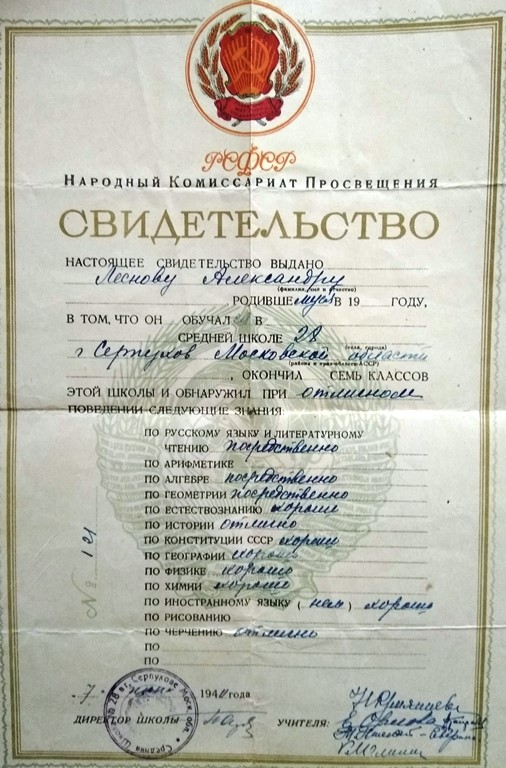 РСФСР
НАРОДНЫЙ КОМИССАРИАТ ПРОСВЕЩЕНИЯ
СВИДЕТЕЛЬСТВО
НАСТОЯЩЕЕ СВИДЕТЕЛЬСТВО ВЫДАНО
Леснову Александру
(фамилия, имя и отчество)
РОДИВШЕМУСЯ В 19 ГОДУ,
В ТОМ, ЧТО ОН ОБУЧАЛСЯ В
СРЕДНЕЙ ШКОЛЕ 28
(села, города)
г Серпухов Московской области
, ОКОНЧИЛ СЕМЬ КЛАССОВ
ЭТОЙ ШКОЛЫ И ОБНАРУЖИЛ ПРИ отличном
ПОВЕДЕНИИ СЛЕДУЮЩИЕ ЗНАНИЯ:
ПО РУССКОМУ ЯЗЫКУ И ЛИТЕРАТУРНОМУ
ЧТЕНИЮ посредственно
ПО АРИФМЕТИКЕ
ПО АЛГЕБРЕ посредственно
ПО ГЕОМЕТРИИ посредственно
ПО ЕСТЕСТВОЗНАНИЮ хорошо
ПО ИСТОРИИ отлично
ПО КОНСТИТУЦИИ СССР хорошо
ПО ГЕОГРАФИИ хорошо
ПО ФИЗИКЕ хорошо
ПО ХИМИИ хорошо
ПО ИНОСТРАННОМУ ЯЗЫКУ (нем) хорошо
ПО РИСОВАНИЮ
ПО ЧЕРЧЕНИЮ отлично
ПО
ПО
№ 121
7 июня 1941 года
ДИРЕКТОР ШКОЛЫ
УЧИТЕЛЯ:
Средняя Школа № 28 в г. Серпухове Моск. обл.